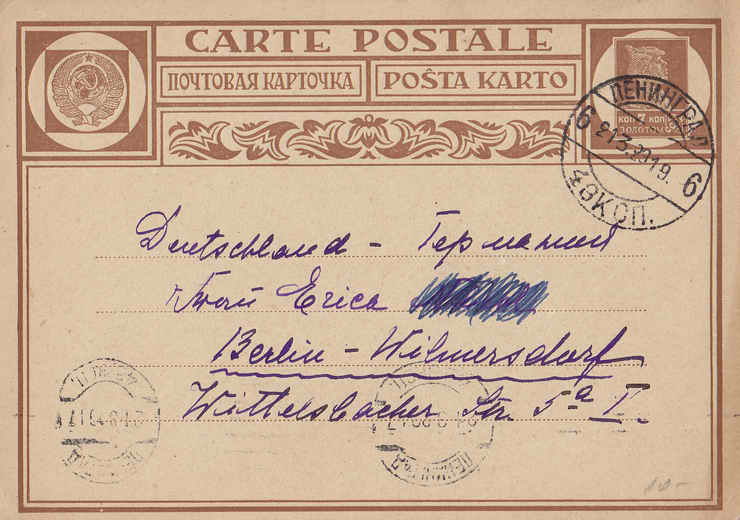 CARTE POSTALE
ПОЧТОВАЯ КАРТОЧКА
POŜTA KARTO
ЛЕНИНГРАД
6 6
48КОП.
Deutschland - Германия
Frau Erica
Berlin - Wilmersdorf
Wittelsbacher Str. 5a I.